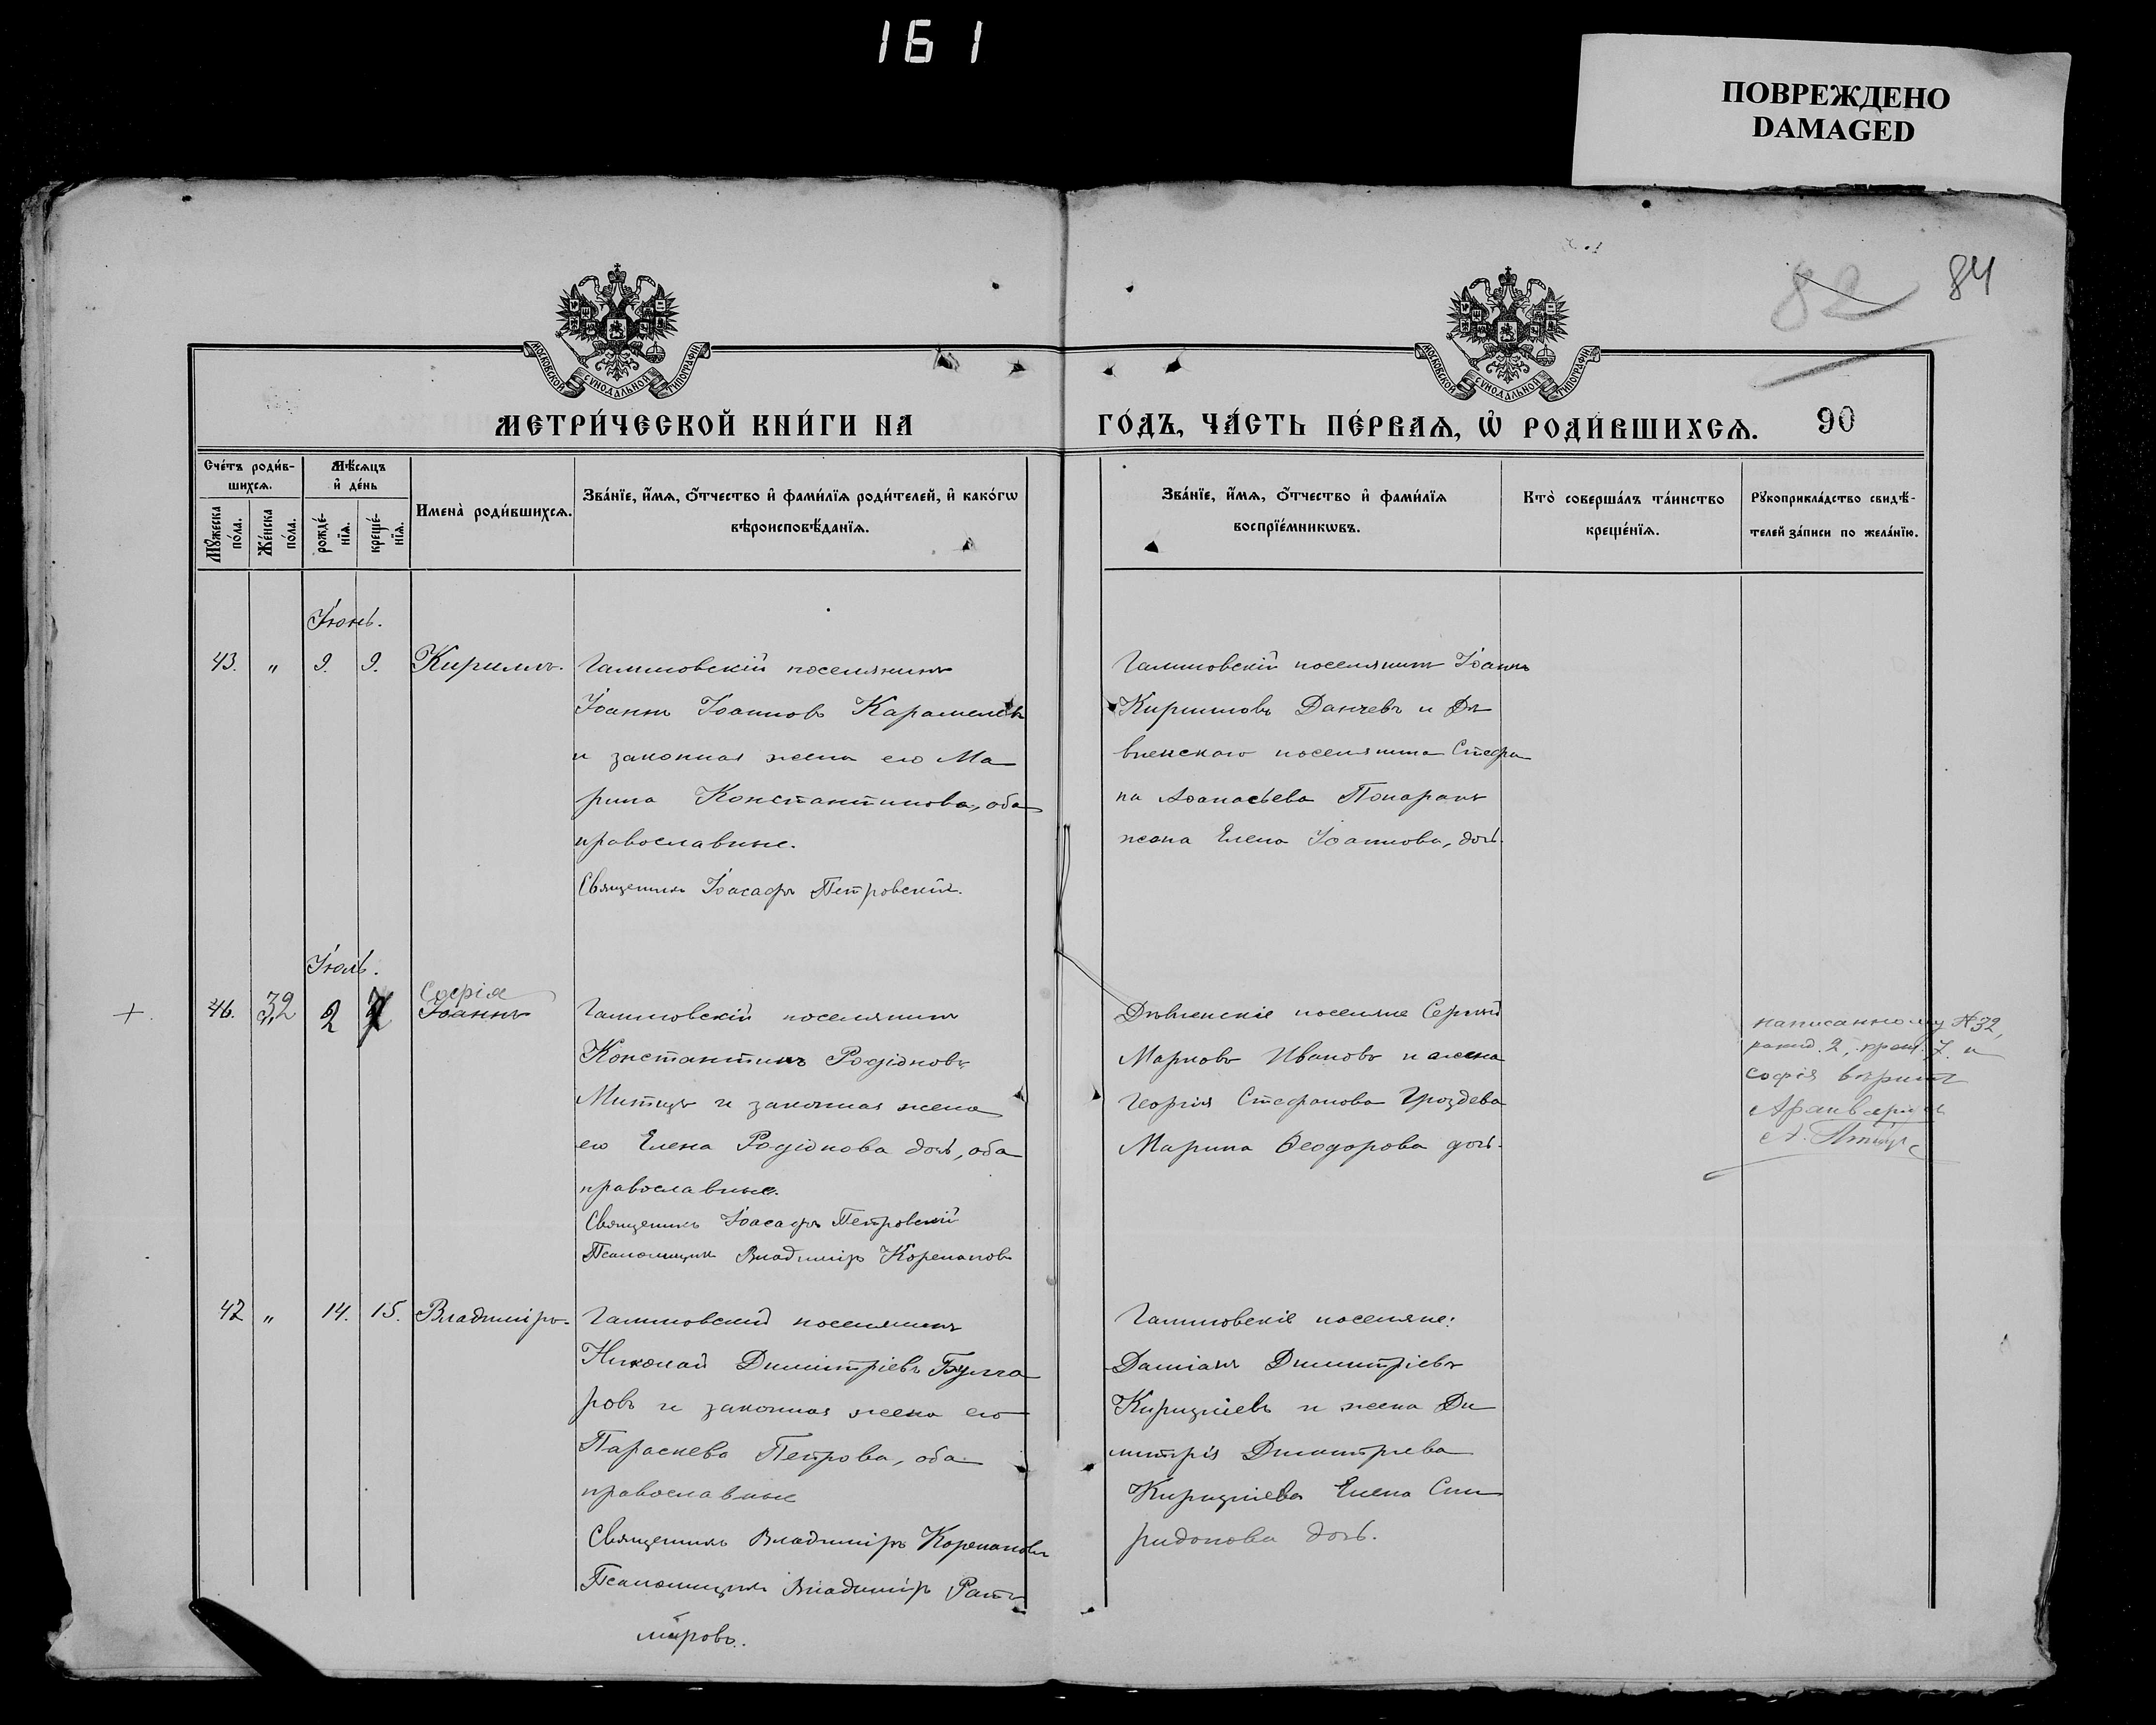 161
ПОВРЕЖДЕНО
DAMAGED
82
84
МОСКОВСКОЙ СѴНОДАЛЬНОЙ ТИПОГРАФІИ
МОСКОВСКОЙ СѴНОДАЛЬНОЙ ТИПОГРАФІИ
МЕТРИ́ЧЕСКОЙ КНИ́ГИ НА
ГО́ДЪ, ЧА́СТЬ ПЕ́РВАѦ, Ѡ҆ РОДИ́ВШИХСѦ.
90
Сче́тъ роди́в-
шихсѧ.
Мꙋ́жеска
по́ла.
Же́нска
по́ла.
Мѣ́сѧцъ
и҆ де́нь
рожде́-
нїѧ.
креще́-
нїѧ.
Имена̀ роди́вшихсѧ.
Зва́нїе, и҆́мѧ, ѻ҆́тчество и҆ фами́лїѧ роди́телей, и҆ како́гѡ
вѣроисповѣ́данїѧ.
Зва́нїе, и҆́мѧ, ѻ҆́тчество и҆ фами́лїѧ
воспрїе́мникѡвъ.
Кто̀ соверша́лъ та́инство
креще́нїѧ.
Рꙋкоприкла́дство свидѣ́-
телей за́писи по жела́нїю.
Іюнь.
43. " 9. 9. Кириллъ.
поселянинъ
Іоаннъ Іоанновъ
и законная жена его Ма
рина Константинова, оба
православные.
Священникъ Іоасафъ Петровскій.
поселянинъ Іоаннъ
Кирилловъ Данчевъ и Дѣ
вленскаго поселянина Стефа
на Аѳанасьева
жена Елена Іоаннова, дочь.
Іюль.
+
46. 32 2 7 Софія
Іоаннъ
поселянинъ
Константинъ Родіоновъ
и законная жена
его Елена Родіонова дочь, оба
православные.
Священникъ Іоасафъ Петровскій
Псаломщикъ Владиміръ Корепановъ
Дѣвленскіе поселяне Сергій
Марковъ Ивановъ и жена
Георгія Стефанова Гроздева
Марина Ѳеодорова дочь.
написанному № 32,
рожд. 2, крещ. 7. и
софія вѣрить
47 " 14. 15. Владиміръ.
поселянинъ
Николай Димитріевъ Булга
ровъ и законная жена его
Параскева Петрова, оба
православные
Священникъ Владиміръ Корепановъ
Псаломщикъ Владиміръ Рати
міровъ.
поселяне:
Даміанъ Димитріевъ
и жена Ди
митрія Димитріева
Елена Спи
ридонова дочь.